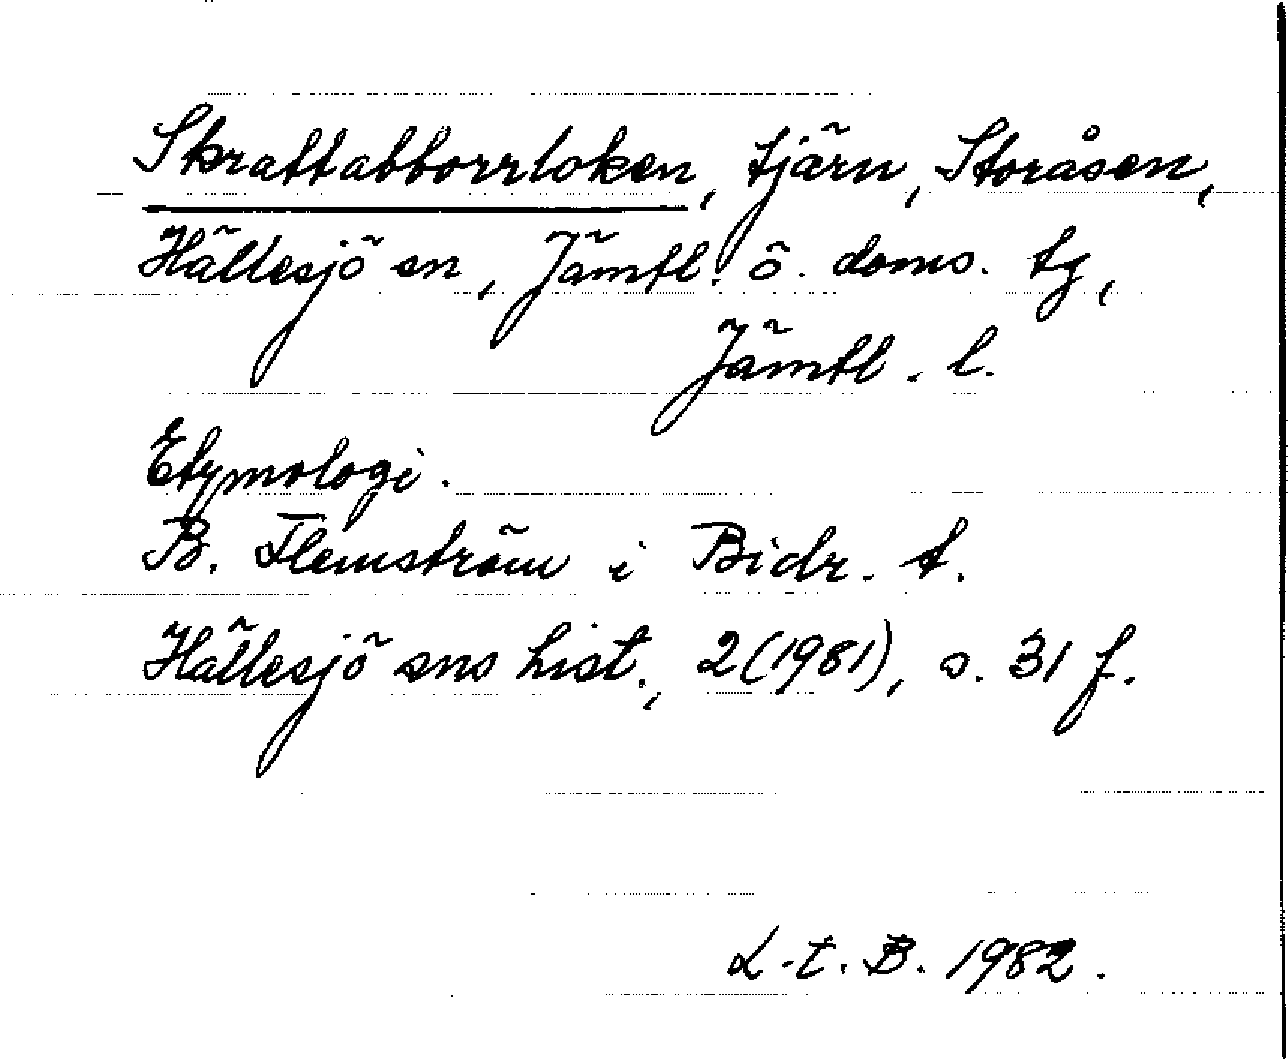 Skrattabborrloken, tjärn, Storåsen,
Hällesjö sn, Jämtl. ö. doms. tg,
Jämtl. l.
Etymologi.
B. Flemström i Bidr. t.
Hällesjö sns hist., 2(1981), s. 31 f.
L-t. B. 1982.